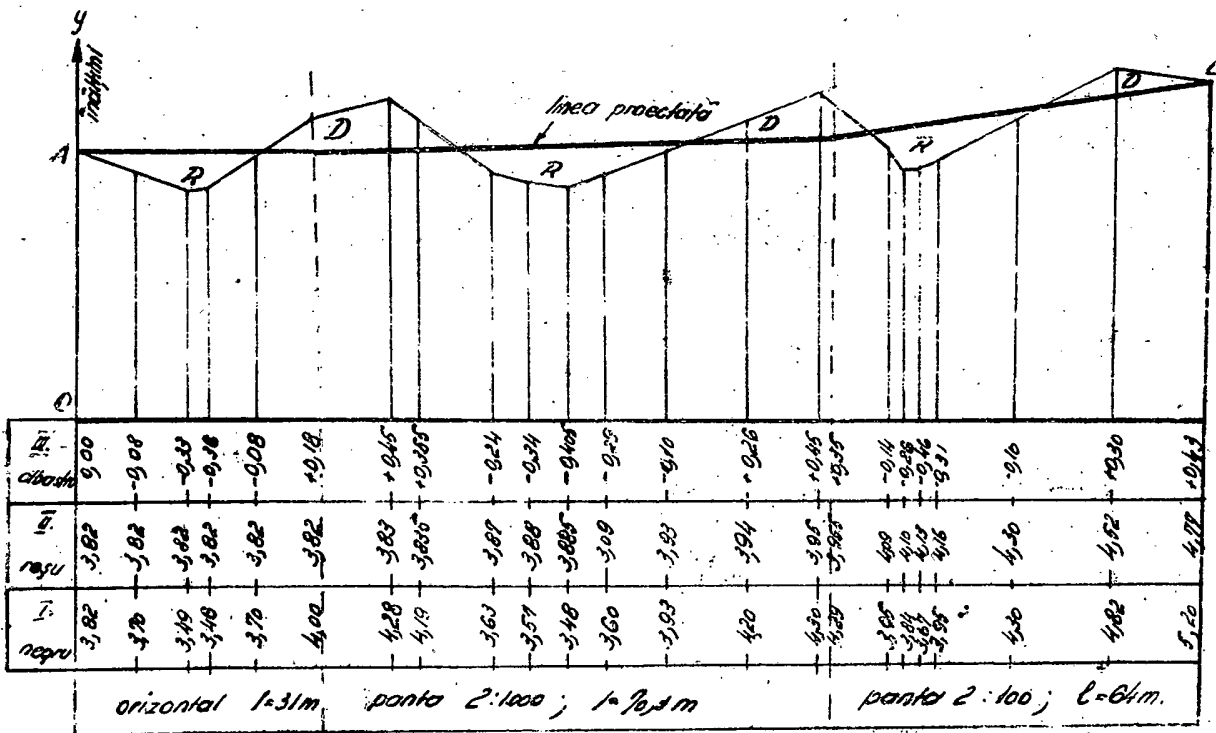 y
înălțimi
A
R
D
linea proectată
R
D
R
D
O
III. 0,00 -0,08 -0,33 -0,38 -0,08 +0,18 +0,45 +0,355 -0,24 -0,34 -0,405 -0,29 -0,10 +0,26 +0,45 +0,35 -0,14 -0,26 -0,46 -0,31 -0,10 +0,30 +0,43
albastru
II. 3,82 3,82 3,82 3,82 3,82 3,82 3,83 3,835 3,87 3,88 3,885 3,09 3,93 3,94 3,95 4,09 4,10 4,13 4,16 4,30 4,52 4,77
roșu
I. 3,82 3,70 3,49 3,48 3,70 4,00 4,28 4,19 3,63 3,57 3,48 3,60 3,93 4,20 4,30 4,29 3,95 3,84 3,67 3,95 4,30 4,82 5,20
negru
orizontal l=31m panta 2:1000; l=70,1m panta 2:100; l=64m.